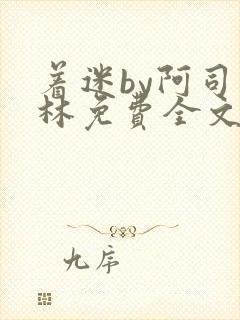 着迷by阿司
林免费全文
九序